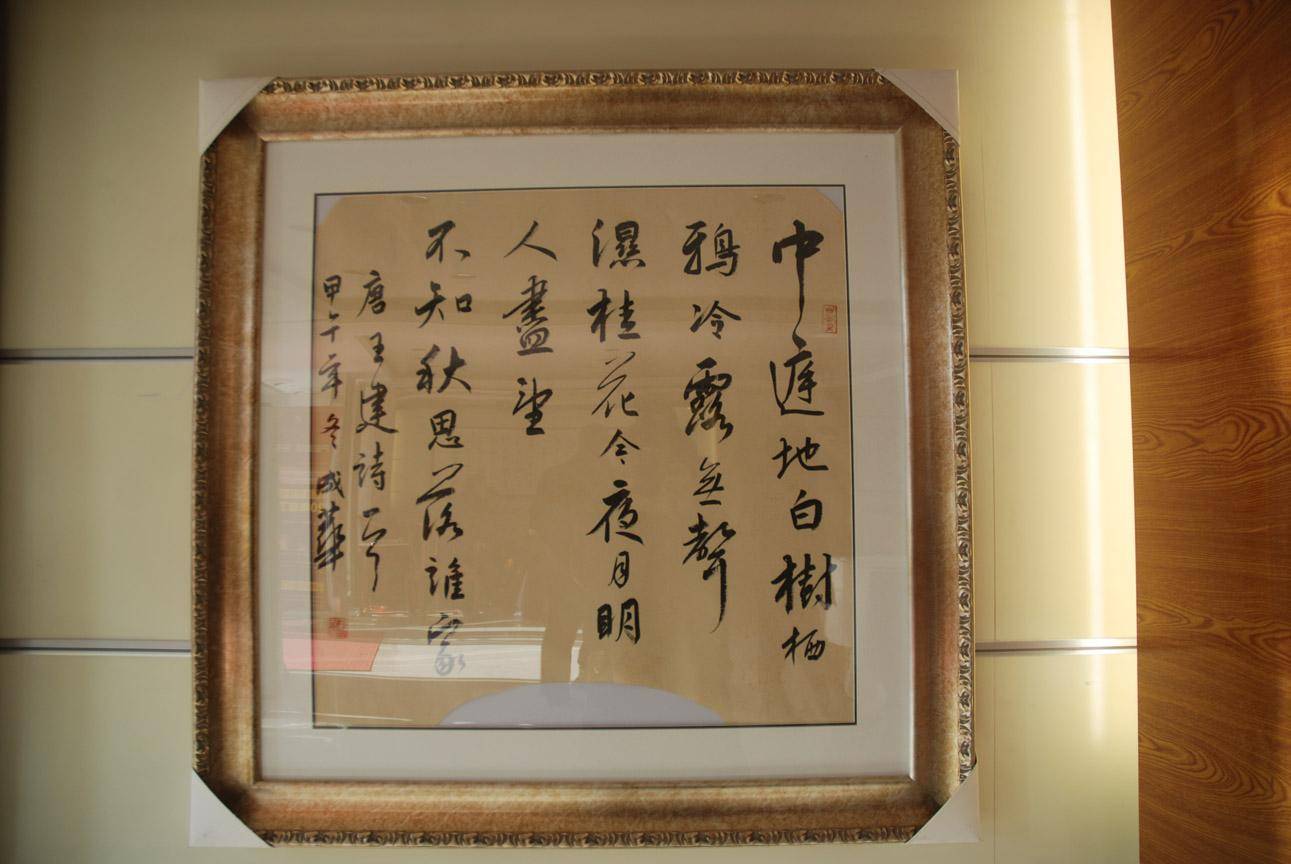 中庭地白樹栖
鴉冷露無聲
濕桂花今夜月明
人盡望
不知秋思落誰家
唐王建詩一首
甲午年冬成華